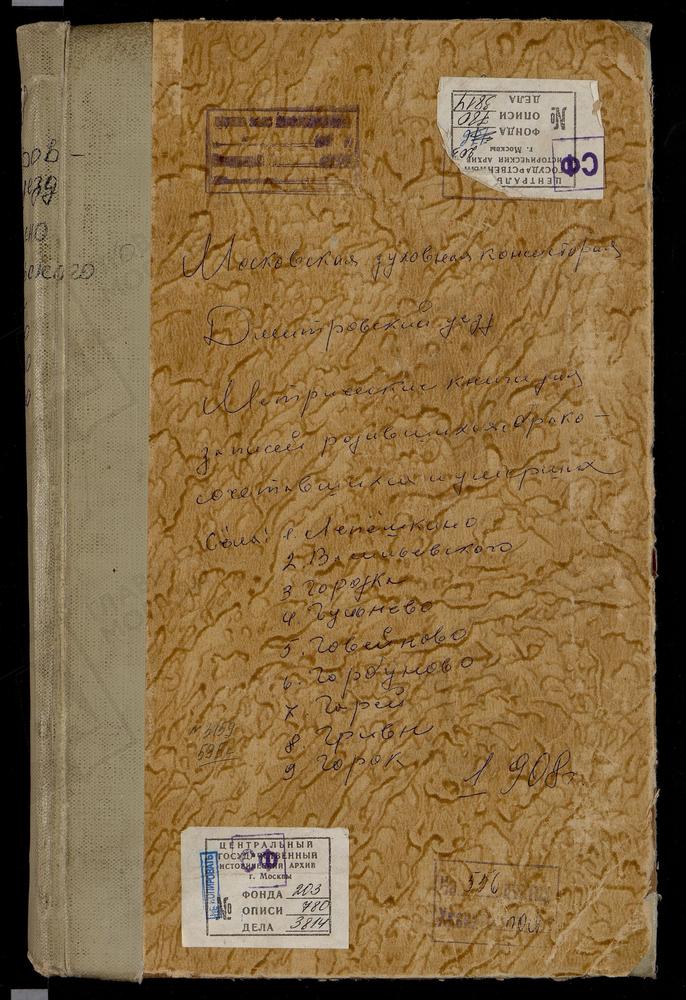 СФ
№
ЦЕНТРАЛЬ
ГОСУДАРСТВЕННЫЙ
ИСТОРИЧЕСКИЙ АРХИВ
г. Москвы
ФОНДА 203
ОПИСИ 780
ДЕЛА 3814
Московская духовная консистория
Дмитровский уезд
Метрические книги для
записей родившихся, брако-
сочетавшихся и умерших
Сёла: 1. Лепёшкино
2. Васильевского
3 Городка
4. Гульнево
5. Говейново
6. Горбуново
7. Гарей
8. Гривы
9 Горок
1908г
ЦЕНТРАЛЬНЫЙ
ГОСУДАРСТВЕННЫЙ
ИСТОРИЧЕСКИЙ АРХИВ
г. Москвы
СФ
№
ФОНДА 203
ОПИСИ 780
ДЕЛА 3814